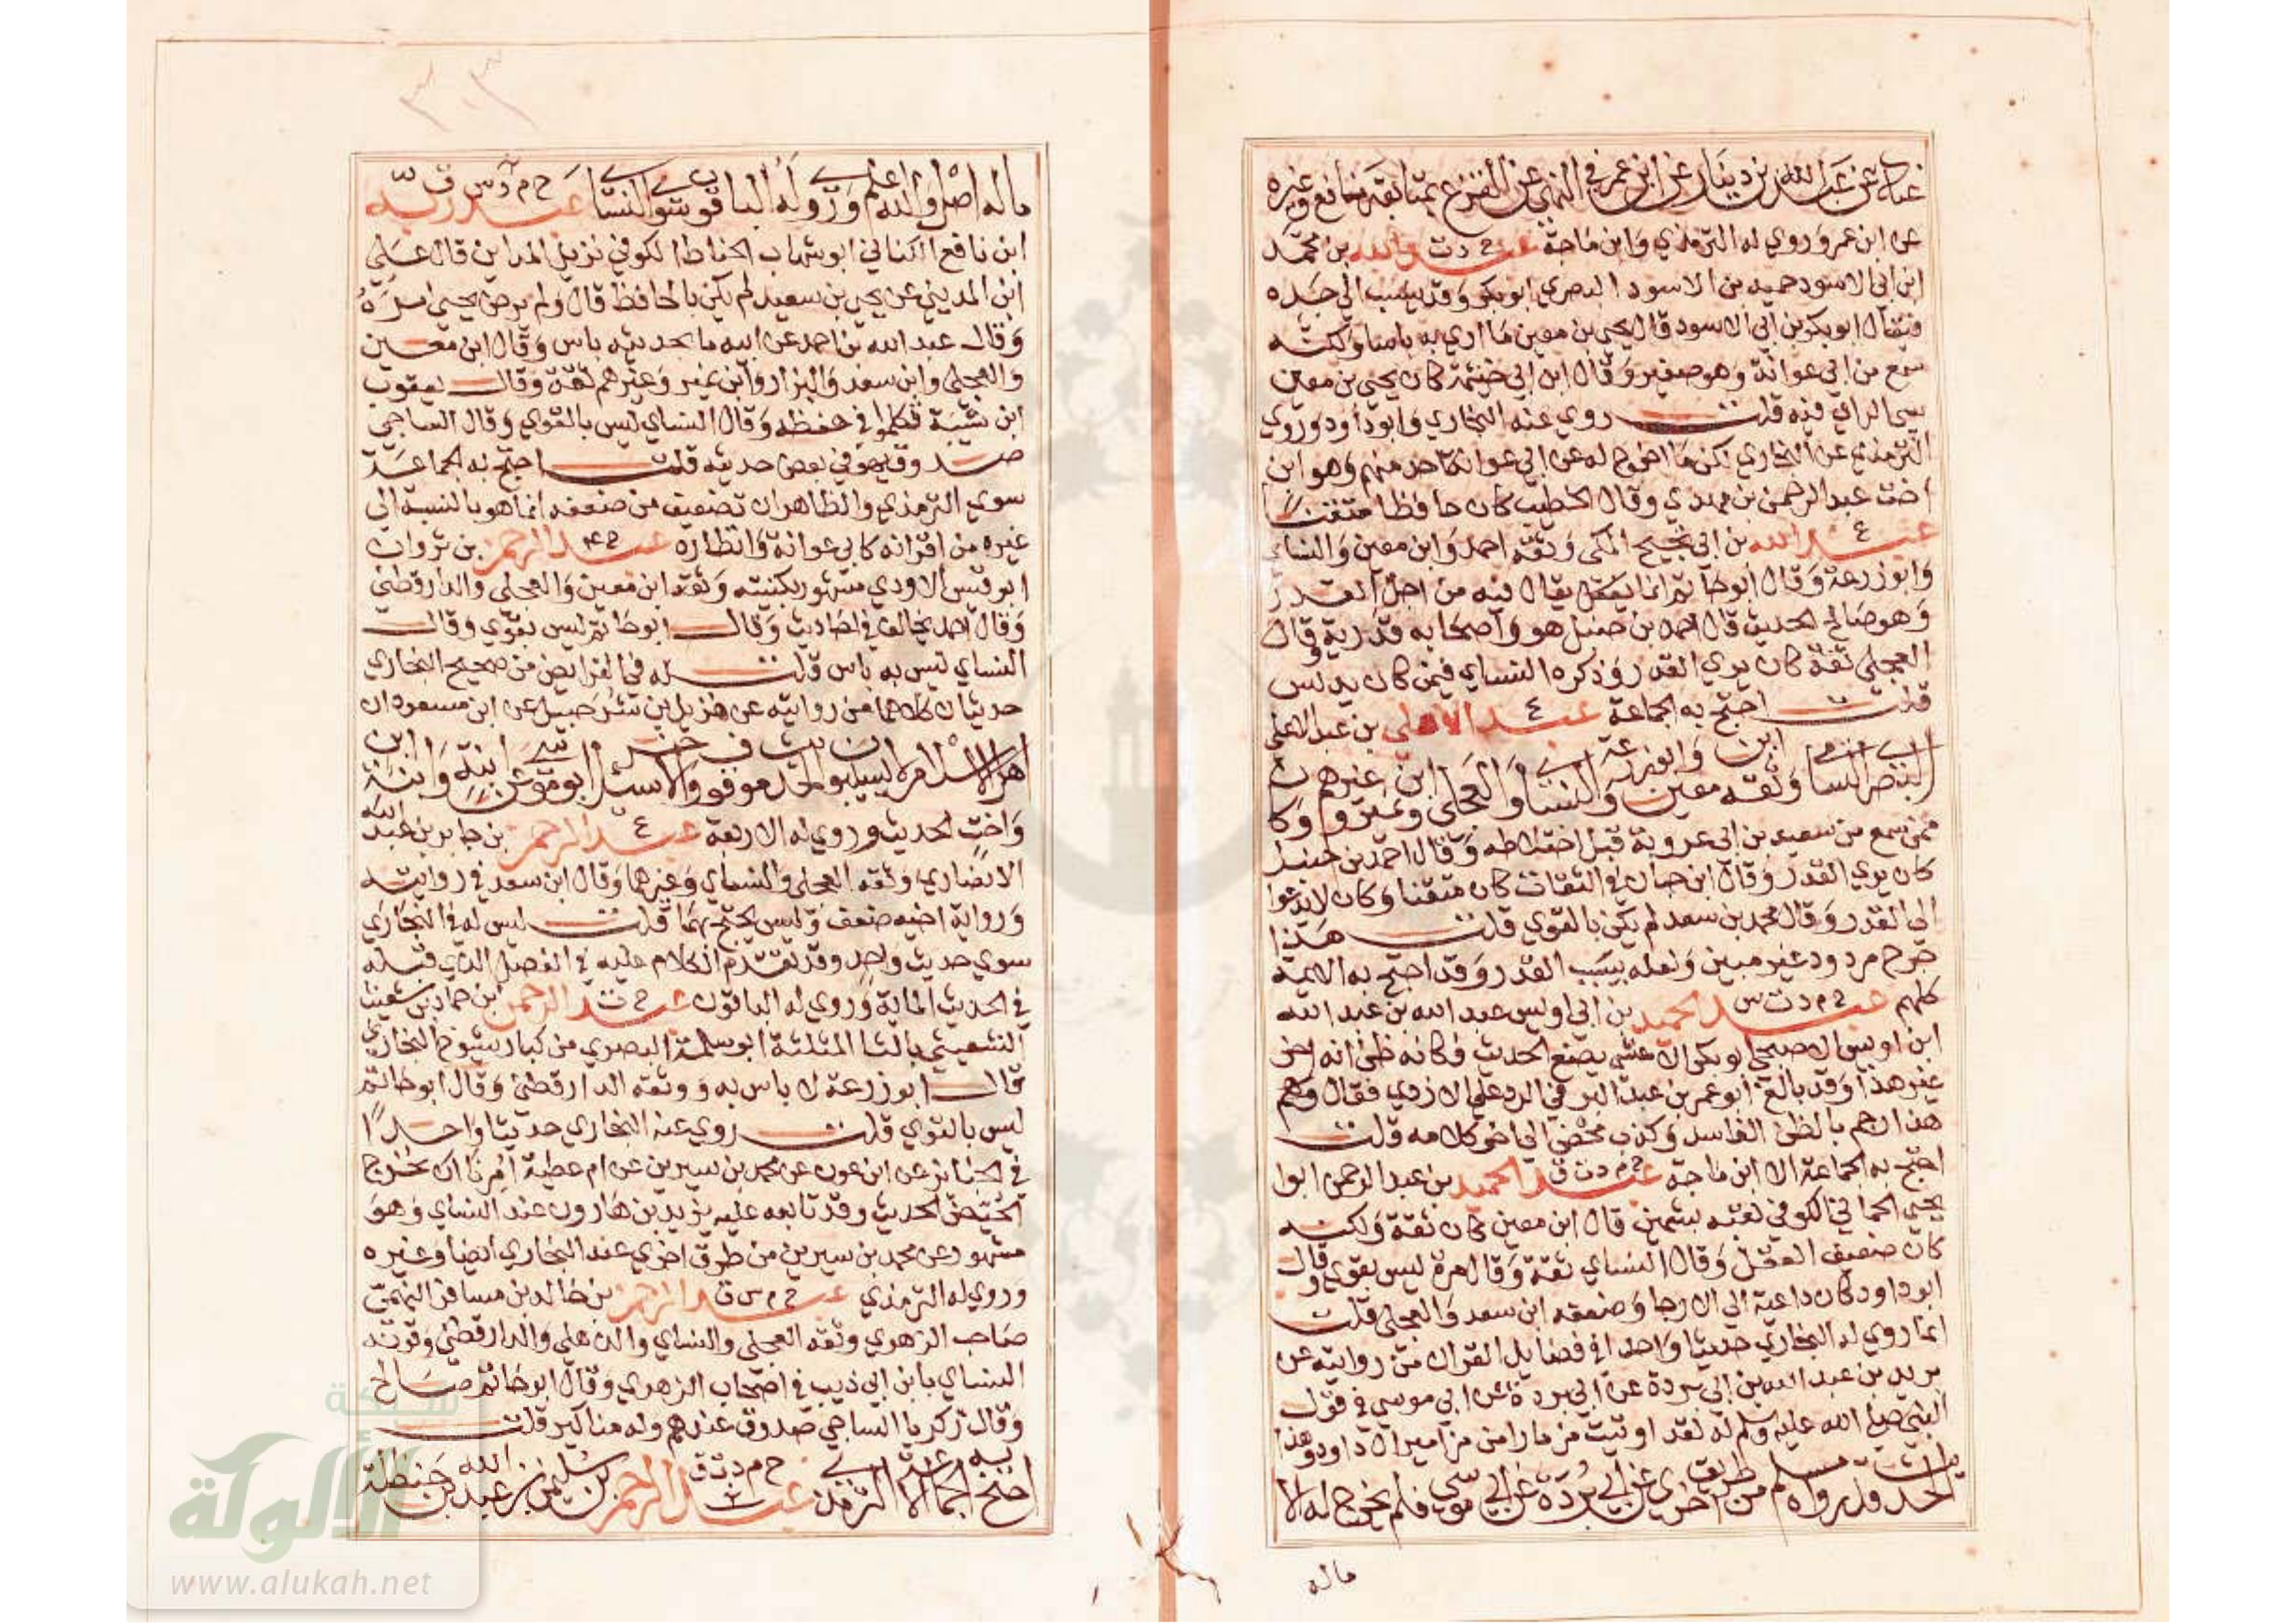 عباد عن عبد الله بن دينار عن ابن عمر في النهي عن القزع بمتابعة نافع وغيره
عن ابن عمر وروي له الترمذي وابن ماجة عبد خ د ت الله بن محمد
ابن ابي الاسود حميد بن الاسود البصري ابو بكر وقد ينسب الي جده
فيقال ابو بكر بن ابي الاسود قال يحيي بن معين ما اري به باسا ولكنه
سمع من ابي عوانة وهو صغير وقال ابن ابي خيثمة كان يحيي بن معين
سيي الراي فيه قلت روي عنه البخاري وابو داود وروي
الترمذي عن البخاري لكن ما اخرج له عن ابي عوانة احد منهم وهو ابن
اخت عبد الرحمن بن مهدي وقال الخطيب كان حافظا متقنا
عبد ع الله بن ابي نجيح المكي وثقه احمد وابن معين والنساي
وابو زرعة وقال ابو حاتم انما يقال فيه من اجل القدر
وهو صالح الحديث قال احمد بن حنبل هو واصحابه قدرية وقال
العجلي ثقة كان يري القدر وذكره النساي فيمن كان يدلس
قلت احتج به الجماعة عبد ع الاعلي بن عبد الاعلي
البصري السامي وثقه ابن معين وابو زرعة والنساي والعجلي وابن نمير وغيرهم وكان
ممن سمع من سعيد بن ابي عروبة قبل اختلاطه وقال احمد بن حنبل
كان يري القدر وقال ابن حبان في الثقات كان متقنا وكان لا يدعوا
الي القدر وقال محمد بن سعد لم يكن بالقوي قلت هذا
جرح مردود غير مبين ولعله بسبب القدر وقد احتج به الايمة
كلهم عبد خ م د ت س الحميد بن ابي اويس عبد الله بن عبد الله
ابن اويس الاصبحي ابو بكر الاعشي يضع الحديث وكانه ظن انه اخر
غير هذا وقد بالغ ابو عمر بن عبد البر في الرد علي الازدي فقال وهم
هذا رجم بالظن الفاسد وكذب محض الي اخر كلامه قلت
احتج به الجماعة الا ابن ماجة عبد خ م د ت ق الحميد بن عبد الرحمن ابوا
يحيي الحماني الكوفي لقبه بشمين قال ابن معين كان ثقة ولكنه
كان ضعيف العقل وقال النساي ثقة وقال مرة ليس بقوي وقال
ابو داود كان داعية الي الارجا وضعفه ابن سعد والعجلي قلت
انما روي له البخاري حديثا واحدا في فضايل القران من روايته عن
بريد بن عبد الله بن ابي بردة عن ابي بردة عن ابي موسي في قول
النبي صلي الله عليه وسلم له لقد اوتيت مزمارا من مزامير ال داود وهذا
الحديث قد رواه مسلم من طريق اخري عن ابي بردة عن ابي موسي فلم يخرج له الا
ماله
٣٠٣
ماله اصل والله اعلم وروي له الباقون سوي النساي عبد خ م د س ق ربه
ابن نافع الكناني ابو شهاب الحناط الكوفي نزيل المداين قال علي
ابن المديني عن يحيي بن سعيد لم يكن بالحافظ قال ولم يرض يحيي امره
وقال عبد الله بن احمد عن ابيه ما بحديثه باس وقال ابن معين
والعجلي وابن سعد والبزار وابن نمير وغيرهم ثقة وقال يعقوب
ابن شيبة تكلموا في حفظه وقال النساي ليس بالقوي وقال الساجي
صدوق يهم في بعض حديثه قلت احتج به الجماعة
سوي الترمذي والظاهر ان تضعيف من ضعفه انما هو بالنسبة الي
غيره من اقرانه كابي عوانة وانظاره عبد خ ٤ الرحمن بن ثروان
ابو قيس الاودي مشهور بكنيته وثقه ابن معين والعجلي والدارقطني
وقال احمد يخالف في احاديث وقال ابو حاتم ليس بقوي وقال
النساي ليس به باس قلت له في الفرايض من صحيح البخاري
حديثان كلاهما من روايته عن هزيل بن شرحبيل عن ابن مسعود ان
اهل الاسلام لا يسيبون الحديث موقوف والاخر سيل ابو موسي عن ابنة وابنة ابن
واخت الحديث وروي له الاربعة عبد ع الرحمن بن جابر بن عبد الله
الانصاري وثقه العجلي والنساي وغيرهما وقال ابن سعد في روايته
ورواية اخيه ضعف وليس يحتج بهما قلت ليس له في البخاري
سوي حديث واحد وقد تقدم الكلام عليه في الفصل الذي قبله
في الحديث الماية وروي له الباقون عبد خ ت الرحمن بن حماد بن شعيث
الشعيثي بالثا المثلثة ابو سلمة البصري من كبار شيوخ البخاري
قال ابو زرعة لا باس به ووثقه الدارقطني وقال ابو حاتم
ليس بالقوي قلت روي عنه البخاري حديثا واحدا
في الجنايز عن ابن عون عن محمد بن سيرين عن ام عطية امرنا ان نخرج
الحيض الحديث وقد تابعه عليه يزيد بن هارون عند النساي وهو
مشهور عن محمد بن سيرين من طرق اخري عند البخاري ايضا وغيره
وروي له الترمذي عبد خ م س ق الرحمن بن خالد بن مسافر الفهمي
صاحب الزهري وثقه العجلي والنساي والذهلي والدارقطني وقرنه
النساي بابن ابي ذيب في اصحاب الزهري وقال ابو حاتم صالح
وقال زكريا الساجي صدوق عندهم وله مناكير قلت
احتج به الجماعة الا الترمذي عبد خ م د ت ق الرحمن بن سليمن بن عبد الله بن حنظلة
شبكة
الألوكة
www.alukah.net